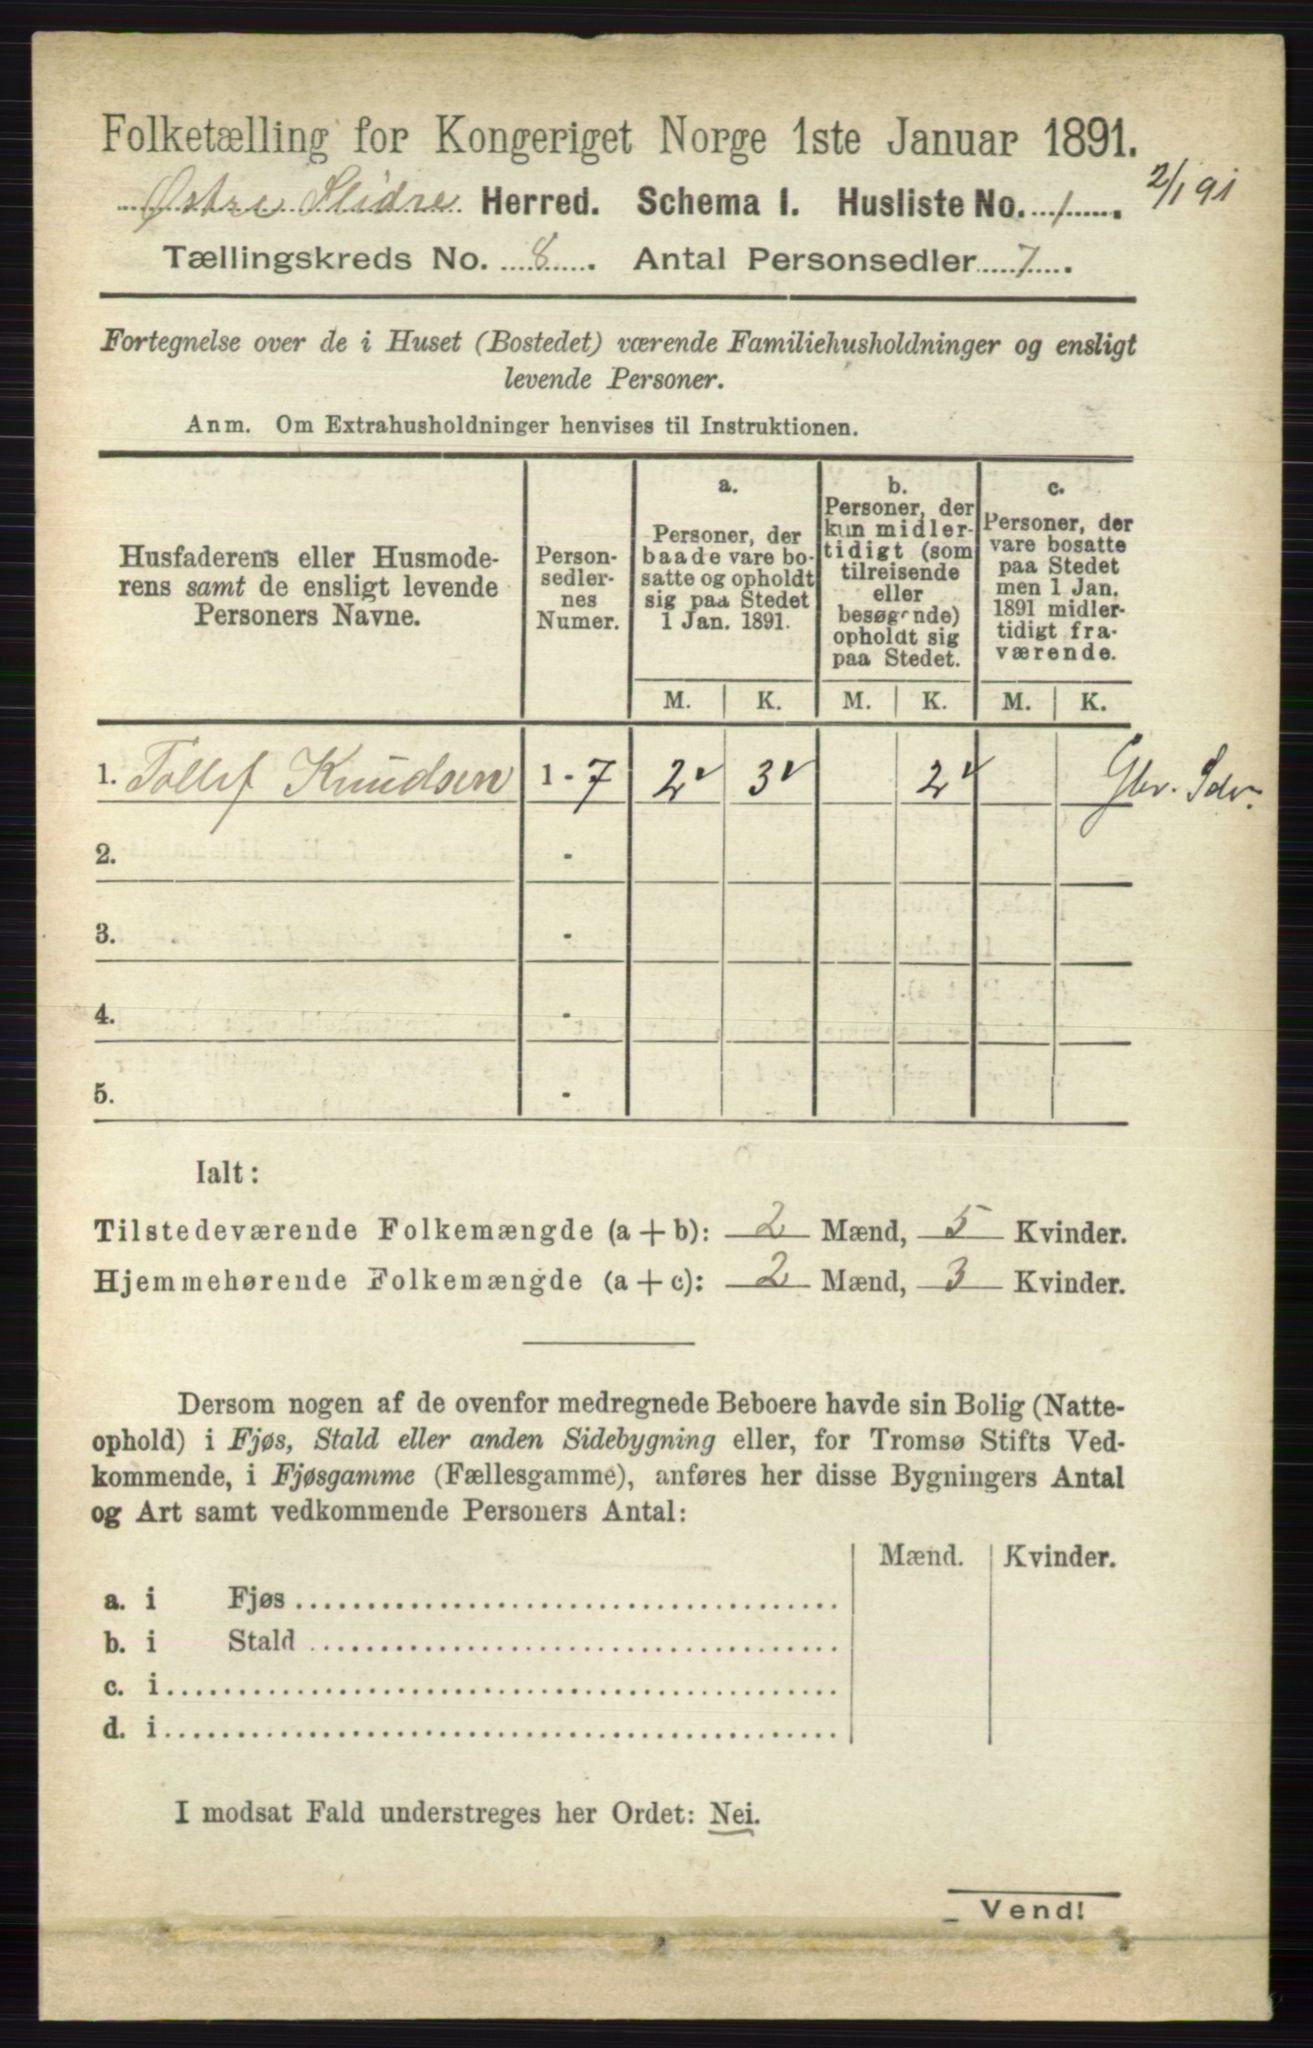 Folketælling for Kongeriget Norge 1ste Januar 1891.
Østre Slidre Herred. Schema I. Husliste No. 1 2/1 91
Tællingskreds No. 8. Antal Personsedler 7.
Fortegnelse over de i Huset (Bostedet) værende Familiehusholdninger og ensligt
levende Personer.
Anm. Om Extrahusholdninger henvises til Instruktionen.
Husfaderens eller Husmode-
rens samt de ensligt levende
Personers Navne.
Person-
sedler-
nes
Numer.
a.
Personer, der
baade vare bo-
satte og opholdt
sig paa Stedet
1 Jan. 1891.
b.
Personer, der
kun midler-
tidigt (som
tilreisende
eller
besøgende)
opholdt sig
paa Stedet.
c.
Personer, der
vare bosatte
paa Stedet
men 1 Jan.
1891 midler-
tidigt fra-
værende.
M. K. M. K. M. K.
1. Tollef Knudsen 1 - 7 2 3 2 Gbr. Sdr.
2. -
3. -
4. -
5. -
Ialt:
Tilstedeværende Folkemængde (a + b): 2 Mænd, 5 Kvinder.
Hjemmehørende Folkemængde (a + c): 2 Mænd, 3 Kvinder.
Dersom nogen af de ovenfor medregnede Beboere havde sin Bolig (Natte-
ophold) i Fjøs, Stald eller anden Sidebygning eller, for Tromsø Stifts Ved-
kommende, i Fjøsgamme (Fællesgamme), anføres her disse Bygningers Antal
og Art samt vedkommende Personers Antal:
Mænd. Kvinder.
a. i Fjøs
b. i Stald
c. i
d. i
I modsat Fald understreges her Ordet: Nei.
Vend!